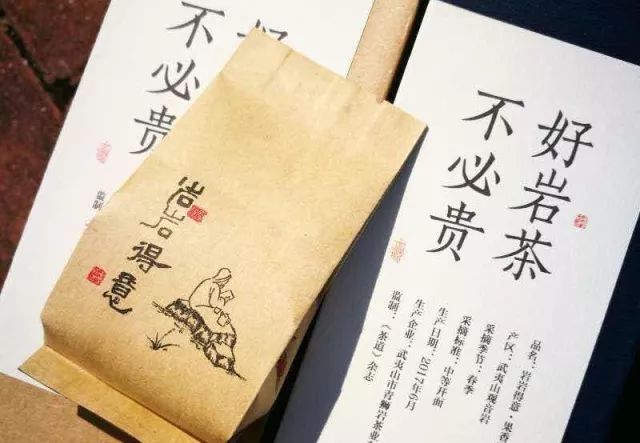 好岩茶
不必贵
品名：岩岩得意·果香
产区：武夷山观音岩
采摘季节：春季
采摘标准：中等开面
生产日期：2017年6月
生产企业：武夷山市青狮岩茶业
监制：《茶道》杂志
岩岩得意
不必贵
监制